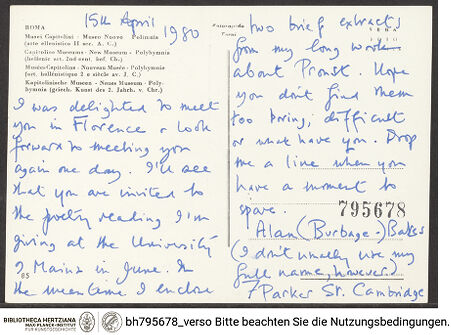 15th April 1980
ROMA
Musei Capitolini - Museo Nuovo - Polimnia
(arte ellenistica II sec. A. C.)
Capitoline Museums - New Museum - Polyhymnia
(hellenic art. 2nd cent. bef. Chr.)
Musées Capitolins - Nouveau Musée - Polymnie
(art. hellénistique 2 e siècle av. J. C.)
Kapitolinische Museen - Neues Museum - Poly-
hymnia (griech. Kunst des 2. Jahrh. v. Chr.)
I was delighted to meet
you in Florence & look
forward to meeting you
again one day. I'll see
that you are invited to
the poetry reading I'm
giving at the University
of Mainz in June. In
the meantime I enclose
85
two brief extracts
from my long work
about Proust. Hope
you don't find them
too boring, difficult
or what have you. Drop
me a line when you
have a moment to
spare.
795678
Alan (Burbage)
(I don't usually use my
full name, however)
7 Parker St. Cambridge
BIBLIOTHECA HERTZIANA
MAX-PLANCK-INSTITUT
FÜR KUNSTGESCHICHTE
bh795678_verso Bitte beachten Sie die Nutzungsbedingungen.